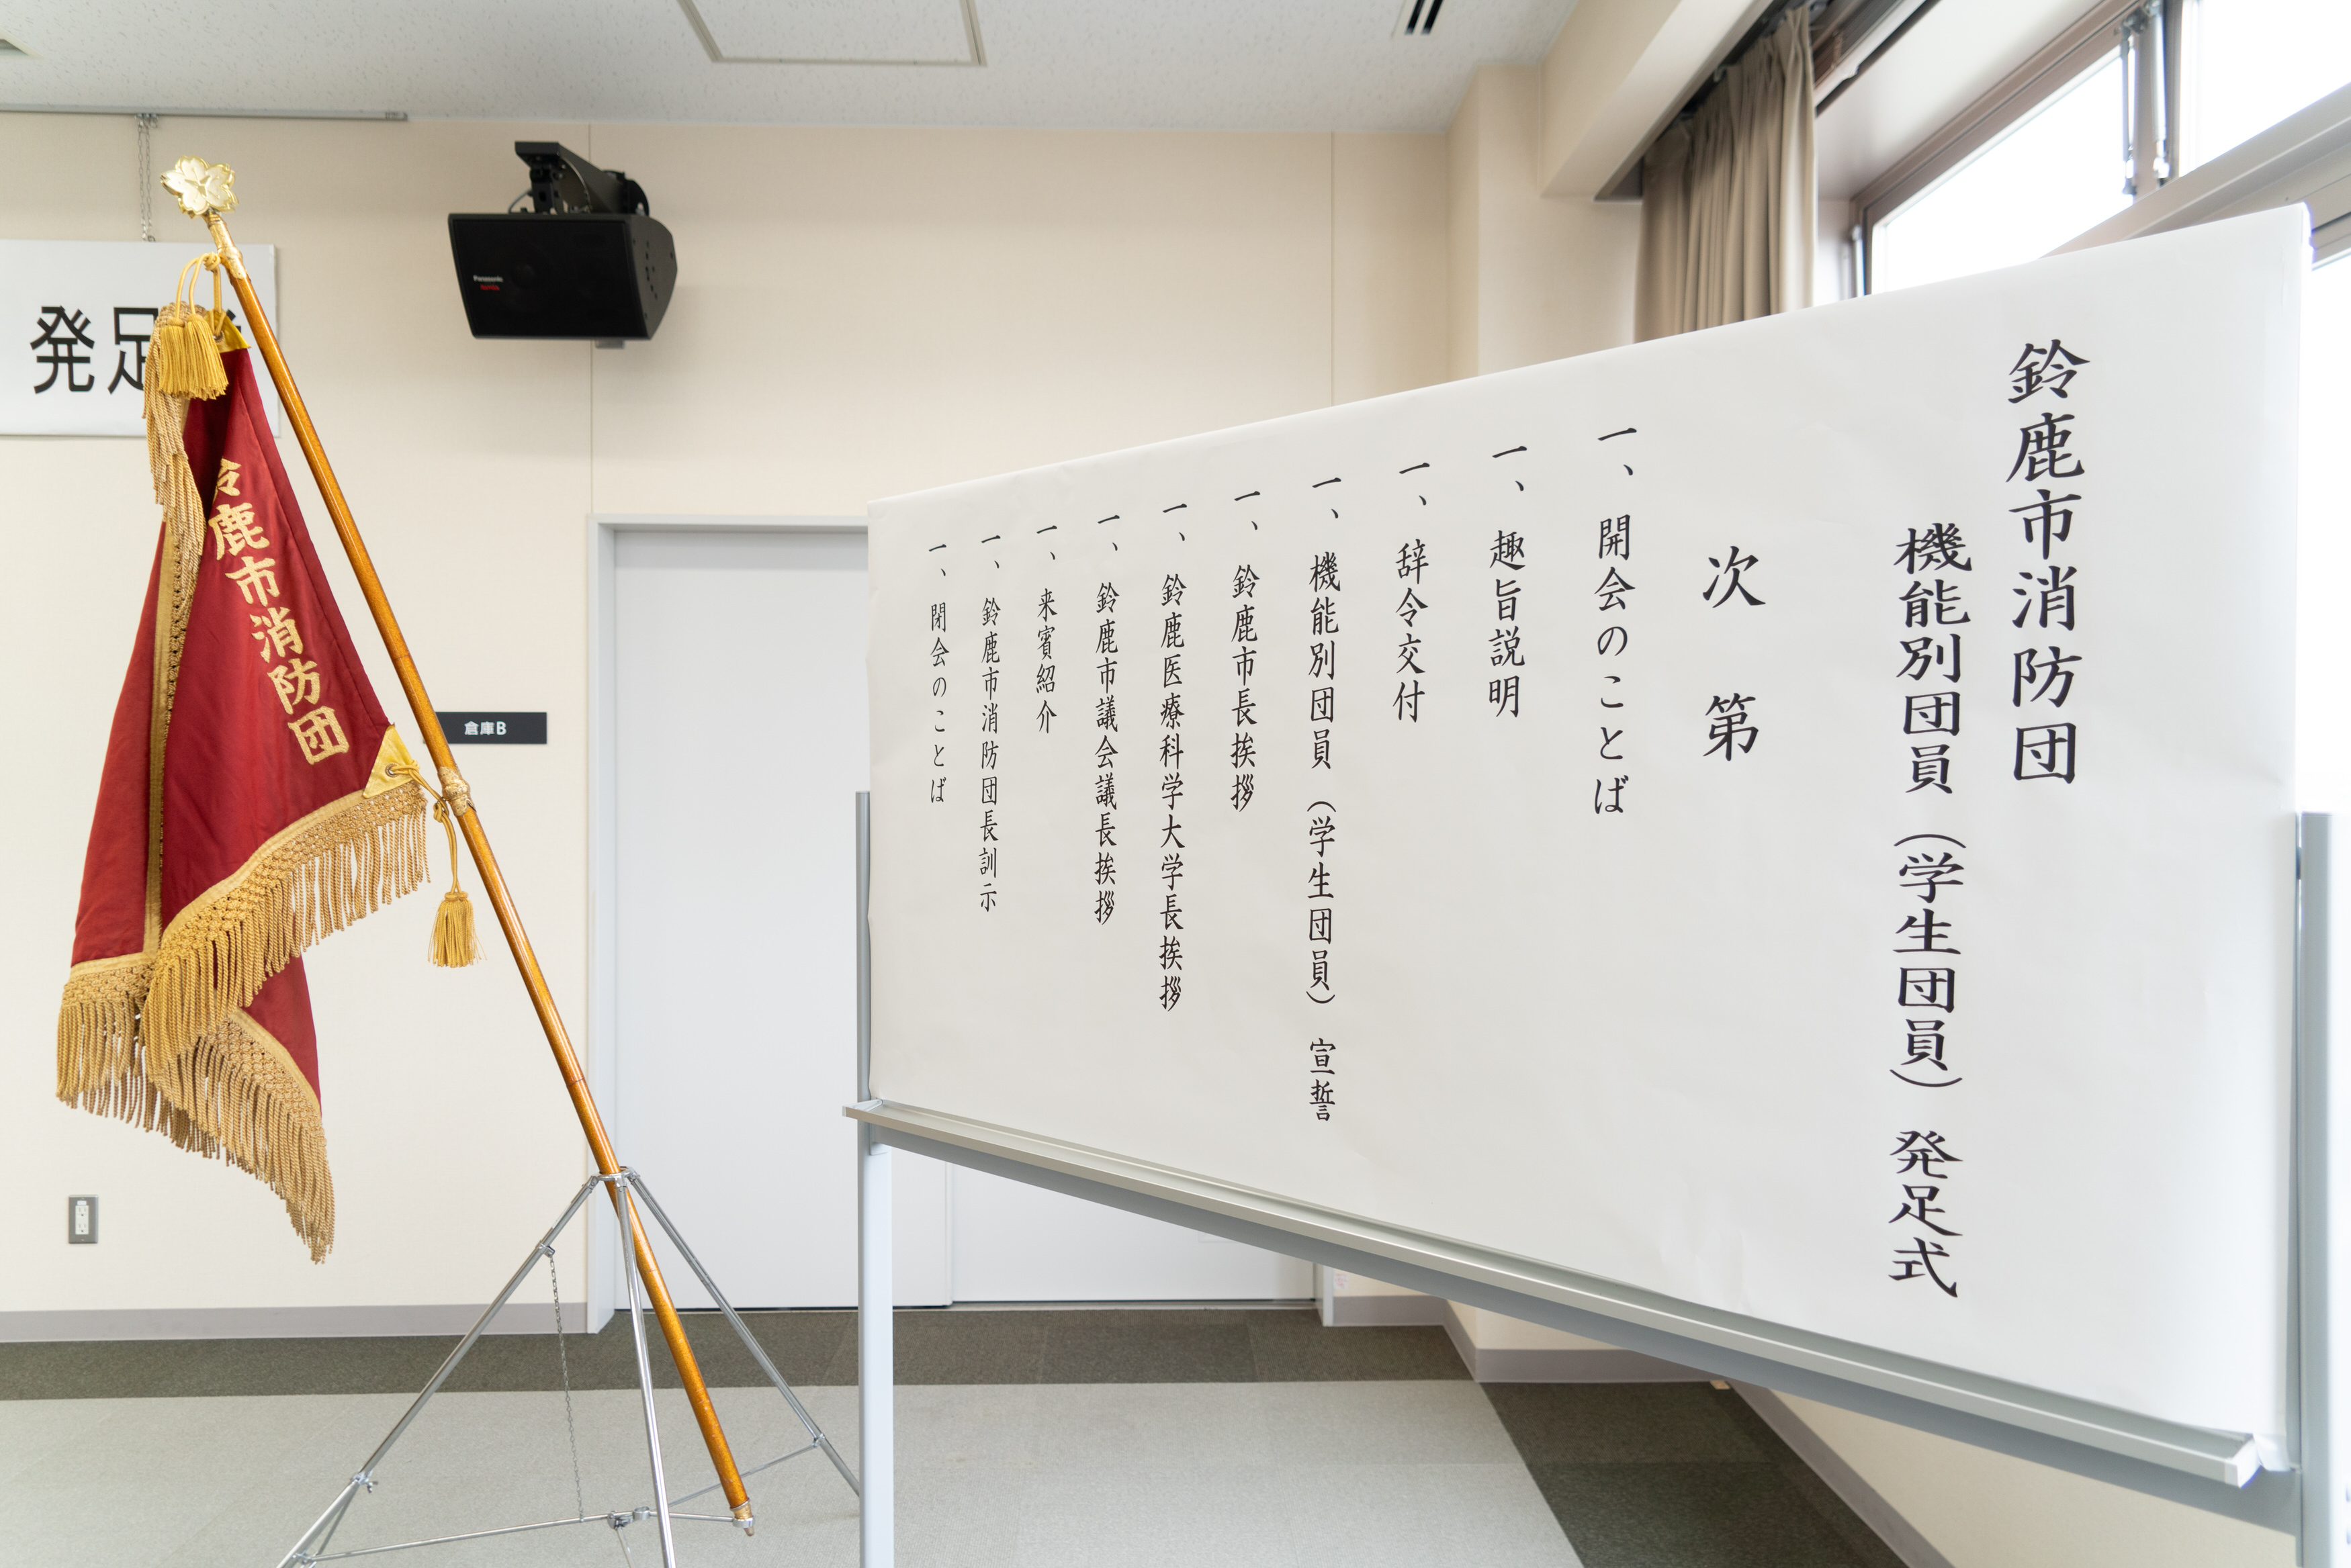 鈴鹿市消防団
機能別団員（学生団員）発足式
次　第
一、開会のことば
一、趣旨説明
一、辞令交付
一、機能別団員（学生団員）宣誓
一、鈴鹿市長挨拶
一、鈴鹿医療科学大学長挨拶
一、鈴鹿市議会議長挨拶
一、来賓紹介
一、鈴鹿市消防団長訓示
一、閉会のことば
発足
鈴鹿市消防団
倉庫B
Panasonic